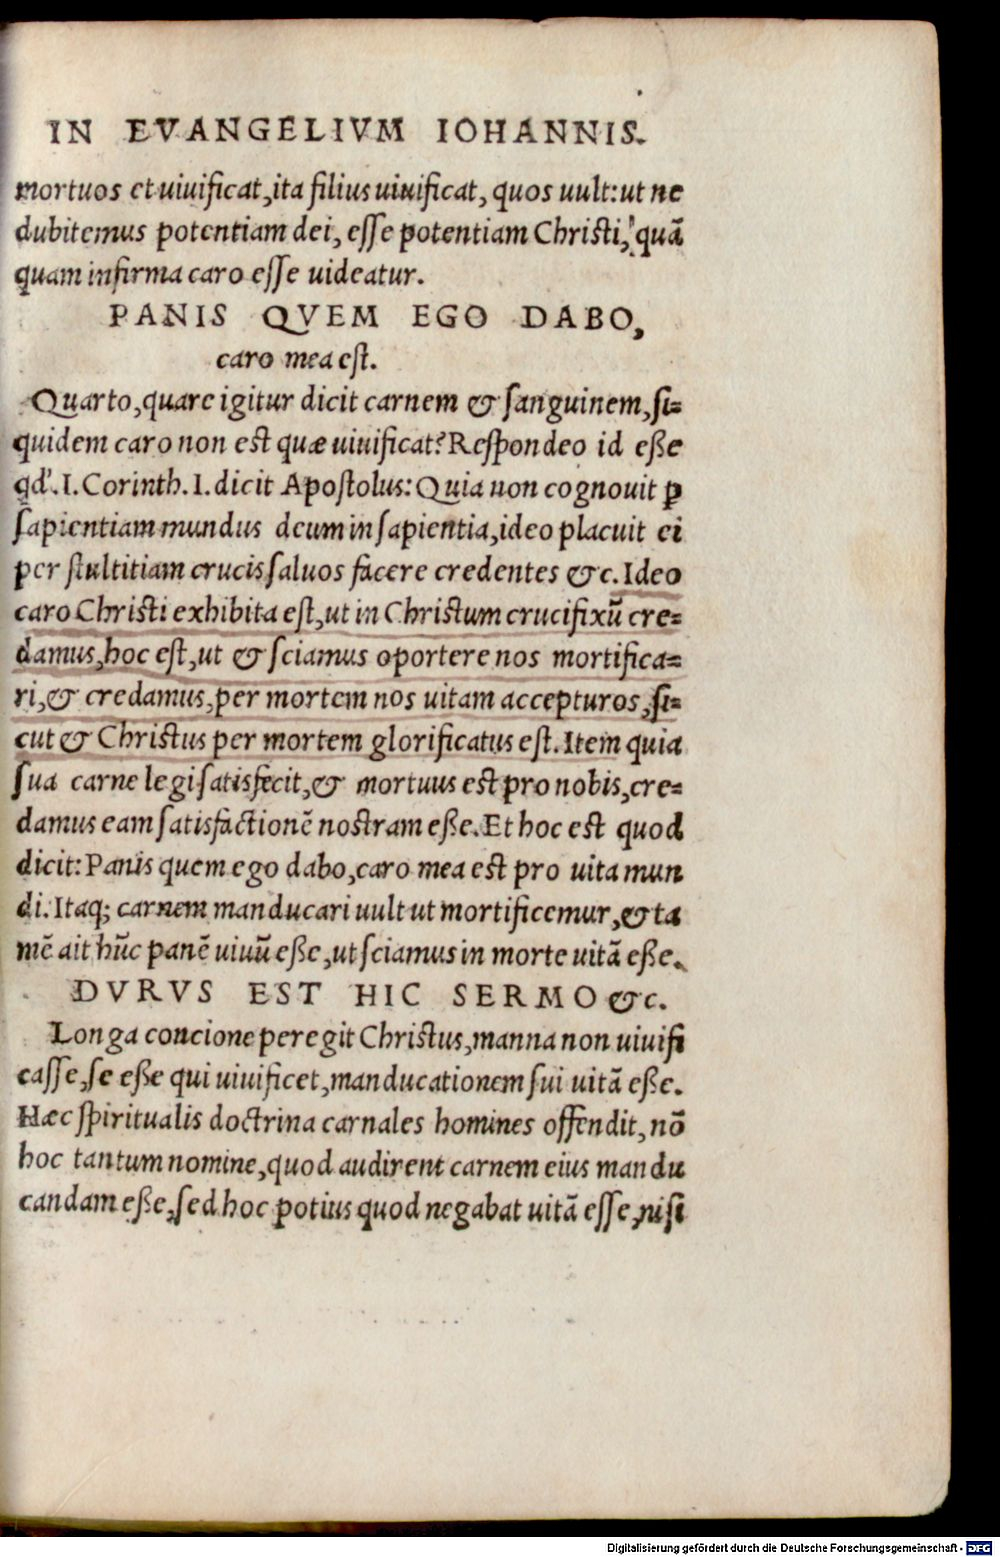 IN EVANGELIVM IOHANNIS.
mortuos et uiuificat, ita filius uiuificat, quos uult: ut ne
dubitemus potentiam dei, esse potentiam Christi, quã
quam infirma caro esse uideatur.
PANIS QVEM EGO DABO,
caro mea est.
Quarto, quare igitur dicit carnem & sanguinem, si=
quidem caro non est quæ uiuificat? Respondeo id eße
qd'. I. Corinth. I. dicit Apostolus: Quia non cognouit ꝑ
sapientiam mundus deum in sapientia, ideo placuit ei
per stultitiam crucis saluos facere credentes &c. Ideo
caro Christi exhibita est, ut in Christum crucifixũ cre=
damus, hoc est, ut & sciamus oportere nos mortifica=
ri, & credamus, per mortem nos uitam accepturos, si=
cut & Christus per mortem glorificatus est. Item quia
sua carne legi satisfecit, & mortuus est pro nobis, cre=
damus eam satisfactionẽ nostram eße. Et hoc est quod
dicit: Panis quem ego dabo, caro mea est pro uita mun
di. Itaq; carnem manducari uult ut mortificemur, & ta
mẽ ait hũc panẽ uiuũ eße, ut sciamus in morte uitã eße.
DVRVS EST HIC SERMO &c.
Longa concione peregit Christus, manna non uiuifi
casse, se eße qui uiuificet, manducationem sui uitã eße.
Hæc spiritualis doctrina carnales homines offendit, nõ
hoc tantum nomine, quod audirent carnem eius mandu
candam eße, sed hoc potius quod negabat uitã esse, nisi
Digitalisierung gefördert durch die Deutsche Forschungsgemeinschaft - DFG